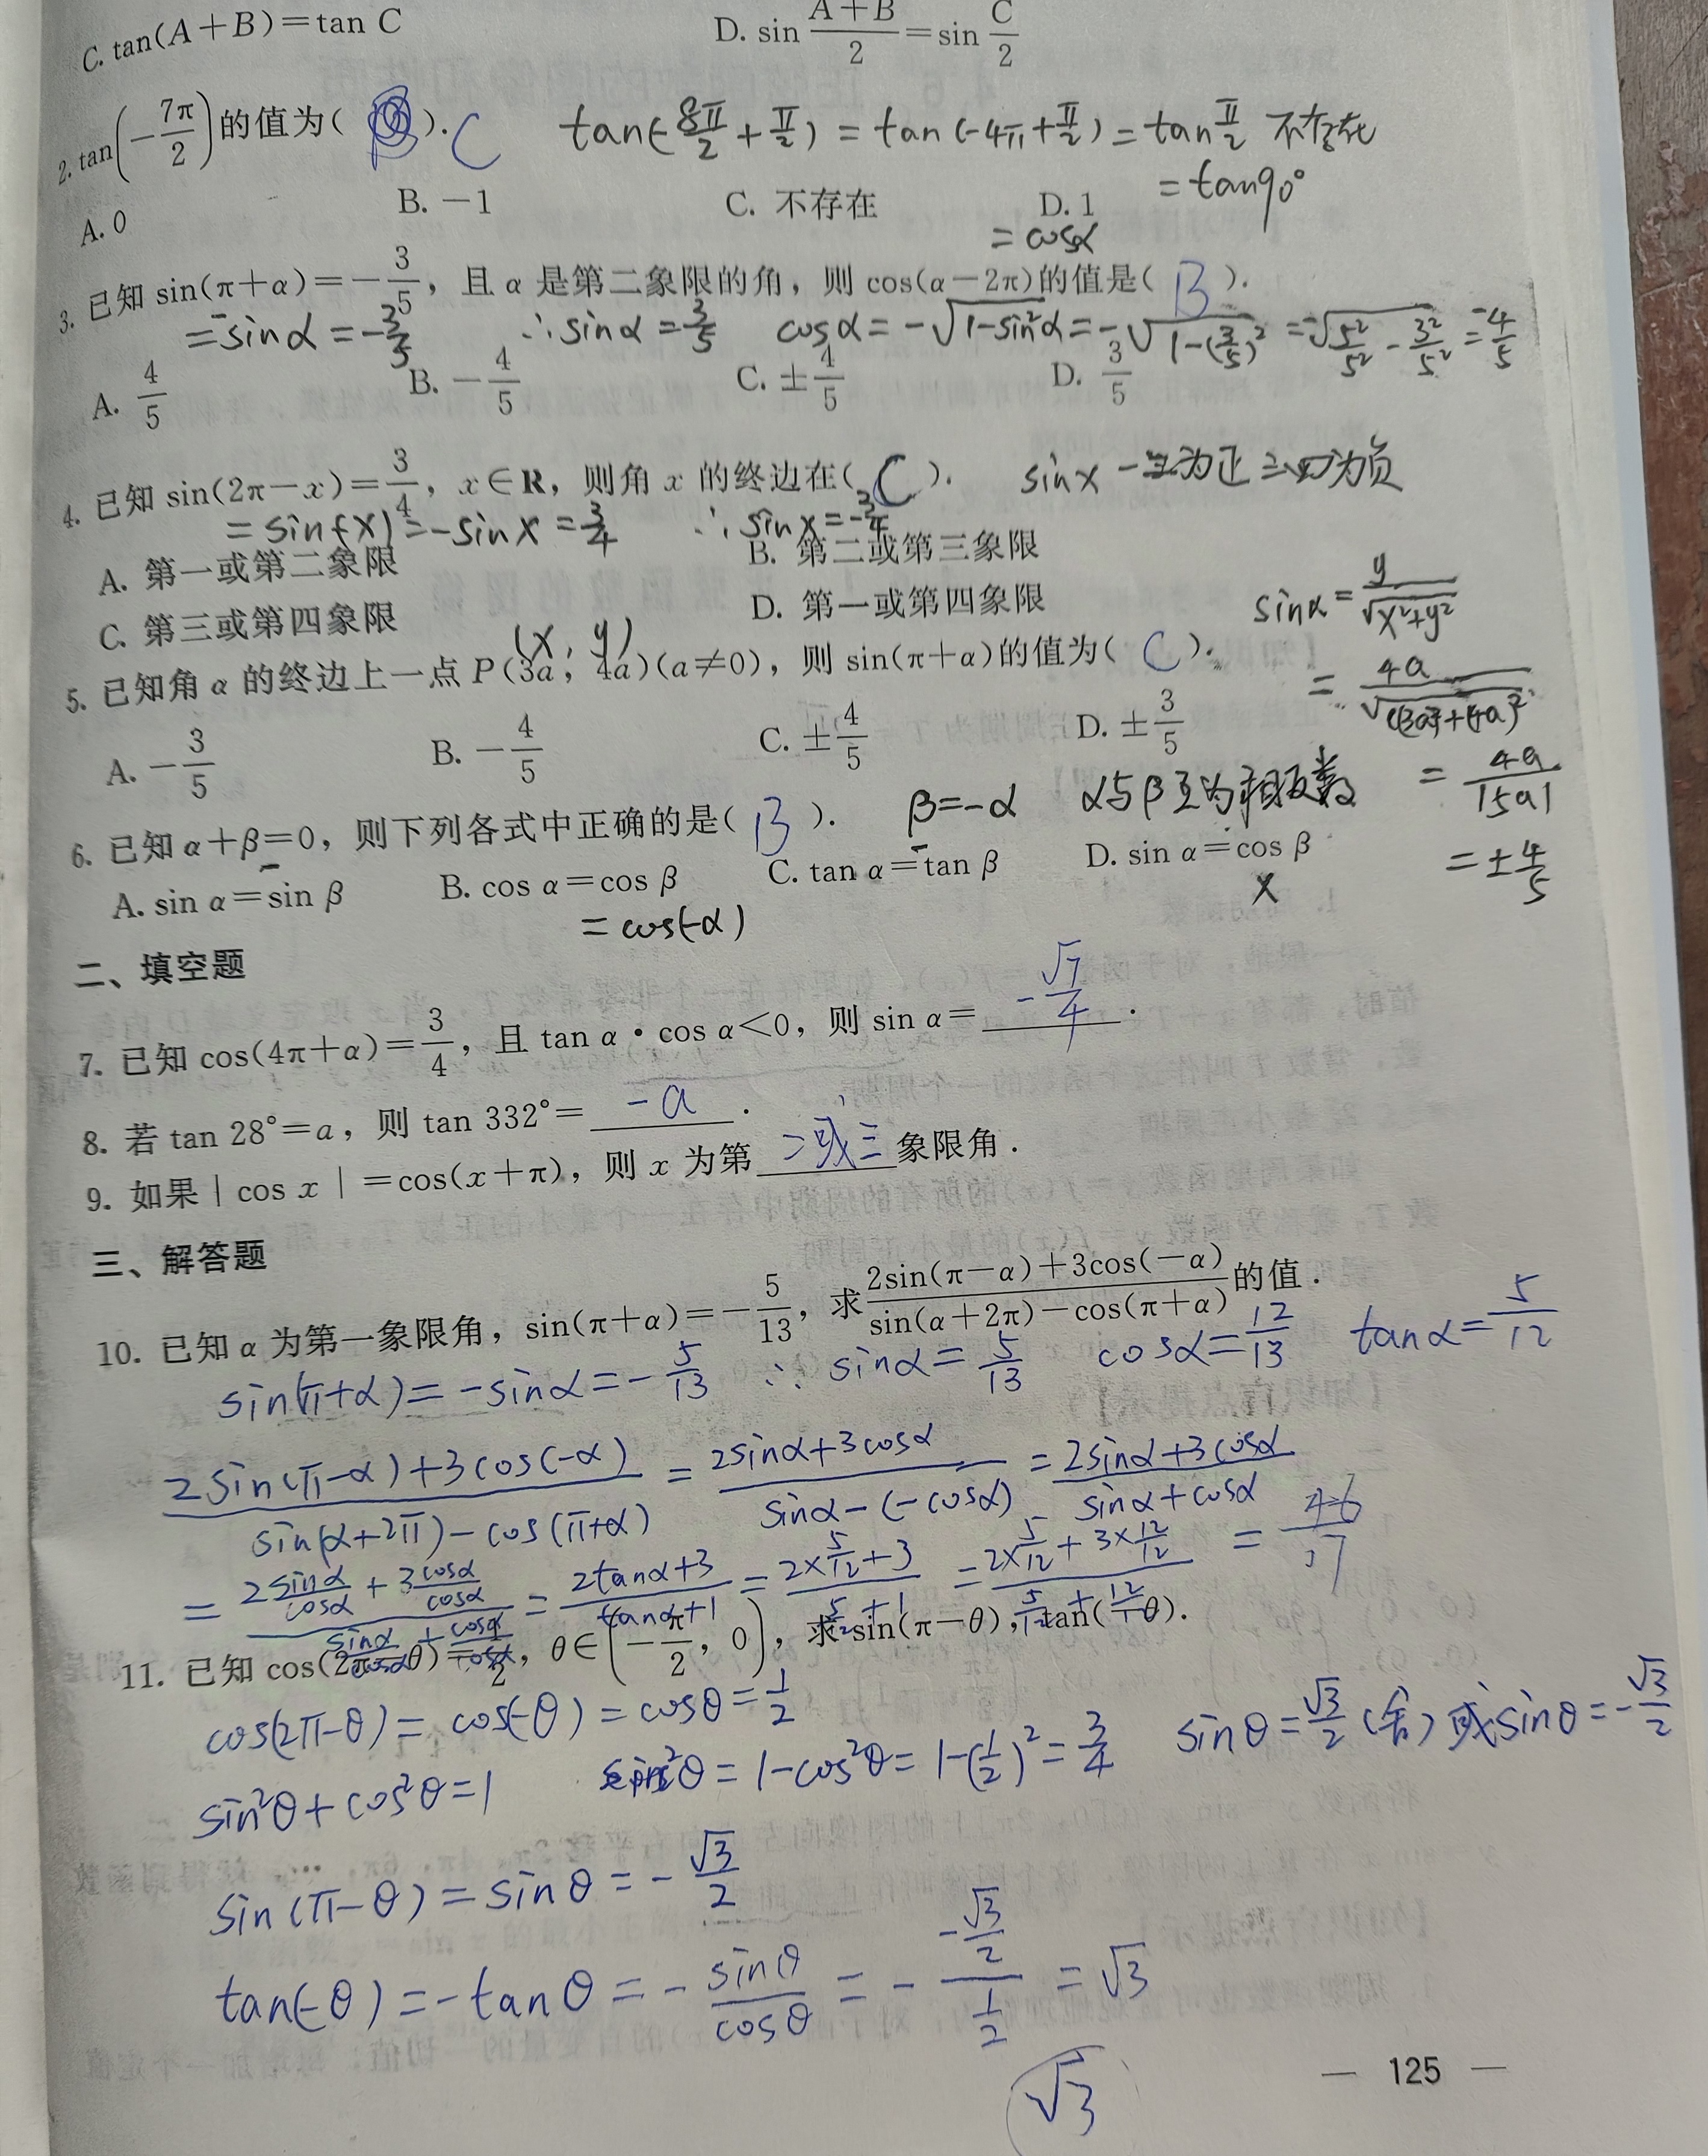 C. tan(A+B)=tan C
D. sin (A+B)/2=sin C/2
2. tan(-7π/2)的值为( ). C tan(-8π/2+π/2)=tan(-4π+π/2)=tanπ/2 不存在
=tan90°
A. 0 B. -1 C. 不存在 D. 1
=cosα
3. 已知 sin(π+α)=-3/5，且 α 是第二象限的角，则 cos(α-2π)的值是( B ).
=-sinα=-3/5 ∴sinα=3/5 cosα=-√(1-sin²α)=-√(1-(3/5)²)=-√(5²/5²-3²/5²)=-4/5
A. 4/5 B. -4/5 C. ±4/5 D. 3/5
4. 已知 sin(2π-x)=3/4，x∈R，则角 x 的终边在( C ). sinx 一二为正 三四为负
=sin(-x)=-sinx=3/4 ∴sinx=-3/4
A. 第一或第二象限 B. 第二或第三象限
C. 第三或第四象限 D. 第一或第四象限
(x, y)
5. 已知角 α 的终边上一点 P(3a，4a)(a≠0)，则 sin(π+α)的值为( C ).
sinα=y/√(x²+y²)
=4a/√((3a)²+(4a)²)
=4a/|5a|
=±4/5
A. -3/5 B. -4/5 C. ±4/5 D. ±3/5
6. 已知 α+β=0，则下列各式中正确的是( B ). β=-α α与β互为相反数
A. sin α=sin β B. cos α=cos β C. tan α=tan β D. sin α=cos β
- - ×
=cos(-α)
二、填空题
7. 已知 cos(4π+α)=3/4，且 tan α·cos α<0，则 sin α=-√7/4.
8. 若 tan 28°=a，则 tan 332°=-a.
9. 如果|cos x|=cos(x+π)，则 x 为第二或三象限角.
三、解答题
10. 已知 α 为第一象限角，sin(π+α)=-5/13，求(2sin(π-α)+3cos(-α))/(sin(α+2π)-cos(π+α))的值.
sin(π+α)=-sinα=-5/13 ∴sinα=5/13 cosα=12/13 tanα=5/12
(2sin(π-α)+3cos(-α))/(sin(α+2π)-cos(π+α))=(2sinα+3cosα)/(sinα-(-cosα))=(2sinα+3cosα)/(sinα+cosα)
=(2sinα/cosα+3cosα/cosα)/(sinα/cosα+cosα/cosα)=(2tanα+3)/(tanα+1)=(2×5/12+3)/(5/12+1)=(2×5/12+3×12/12)/(5/12+12/12)=46/17
11. 已知 cos(2π-θ)=1/2，θ∈(-π/2，0)，求 sin(π-θ)，tan(-θ).
cos(2π-θ)=cos(-θ)=cosθ=1/2
sin²θ+cos²θ=1 sin²θ=1-cos²θ=1-(1/2)²=3/4 sinθ=√3/2(舍)或sinθ=-√3/2
sin(π-θ)=sinθ=-√3/2
tan(-θ)=-tanθ=-sinθ/cosθ=-(-√3/2)/(1/2)=√3
√3
— 125 —